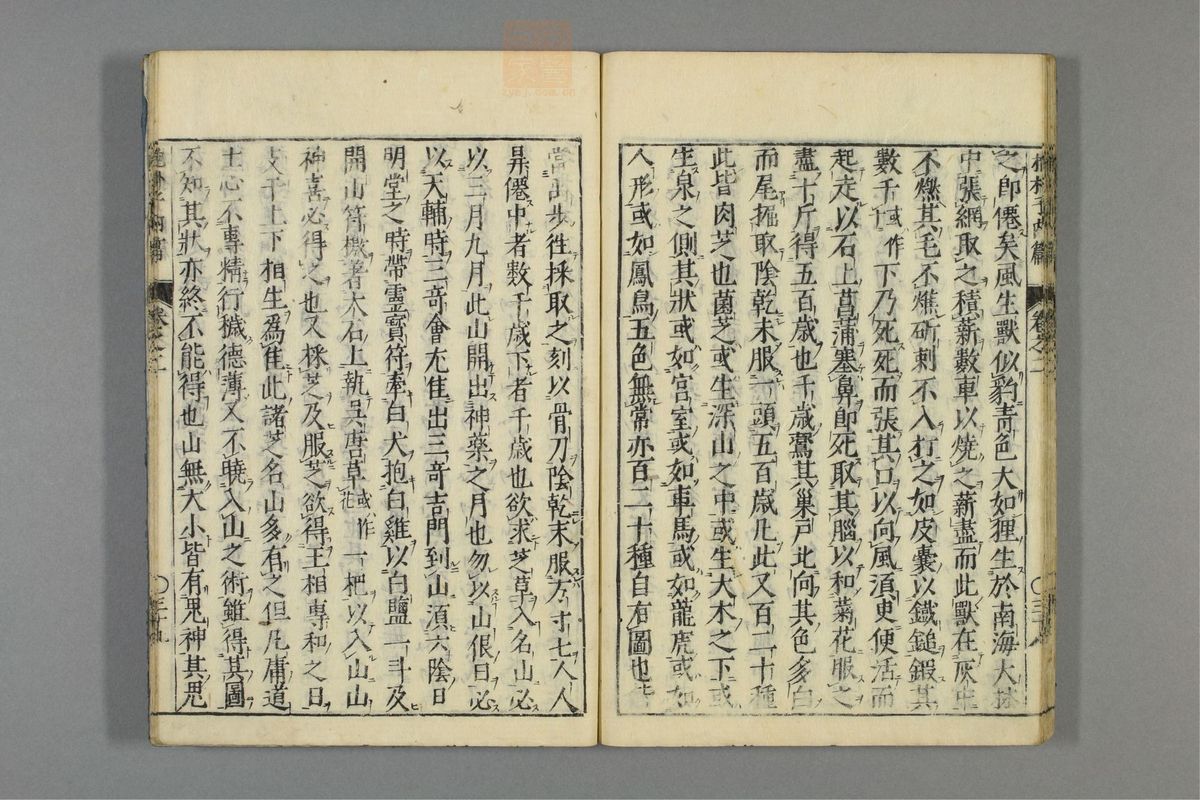 之即僊矣風生獸似豹青色大如狸生於南海大林
中張網取之積薪數車以燒之薪盡而此獸在灰中
不燃其毛不燋斫刺不入打之如皮囊以鐵鎚鍛其
數千或作十下乃死死而張其口以向風須臾便活而
起走以石上菖蒲塞鼻即死取其腦以和菊花服之
盡十斤得五百歲也千歲鷰其巢戸北向其色多白
而尾掘取陰乾末服一頭五百歲凡此又百二十種
此皆肉芝也菌芝或生深山之中或生大木之下或
生泉之側其狀或如宮室或如車馬或如龍虎或如
人形或如鳳鳥五色無常亦百二十種自有圖也皆
當禹步往採取之刻以骨刀陰乾末服方寸七人人
昇僊中者數千歲下者千歲也欲求芝草入名山必
以三月九月此山開出神藥之月也勿以山佷日必
以天輔時三竒會尤隹出三竒吉門到山須六陰日
明堂之時帶靈寶符牽白犬抱白雞以白鹽一斗及
開山符檄著大石上執吳唐草或作花一把以入山山
神喜必得之也又採芝及服芝欲得王相專和之日
支干上下相生為隹此諸芝名山多有之但凡庸道
士心不專精行穢德薄又不曉入山之術雖得其圖
不知其狀亦終不能得也山無大小皆有鬼神其鬼